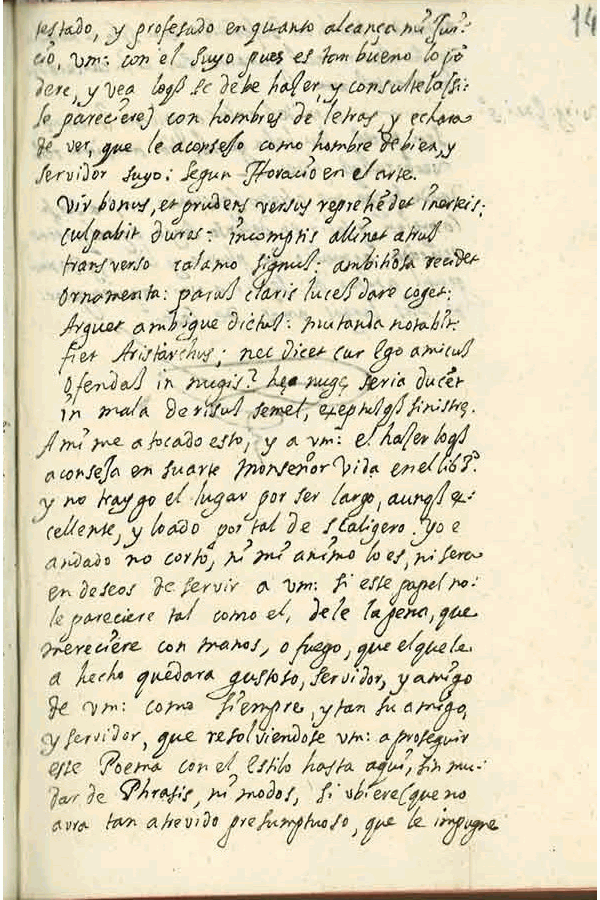 14
testado, y profesado en quanto alcança mi Jui-
cio, vm: con el suyo pues es tan bueno lo po
dere, y vea loq̃ se debe hazer, y consultelo (si:
le pareciere) con hombres de letras, y echara
de ver, que le aconsejo como hombre de bien, y
servidor suyo: segun Horacio en el arte.
Vir bonus, et prudens versus reprehẽdet inerteis;
culpabit duros: incomptis allinet atrũ
transverso calamo signũ: ambitiosa recidet
ornamenta: parũ claris lucẽ dare coget:
Arguet ambigue dictũ: mutanda notabit:
fiet Aristarchus; nec dicet cur Ego amicũ
Ofendã in nugis? hęc nugę seria ducẽt
in mala derisũ semel, exeptũq̃ sinistrę.
A mi me a tocado esto, y a vm: el hazer loq̃
aconseja en su arte Monseñor Vida en el lib.
y no traygo el lugar por ser largo, aunq̃ ex:
cellente, y loado por tal de Scaligero. yo e
andado no corto, ni mi animo lo es, ni sera
en deseos de servir a vm: si este papel no:
le pareciere tal como el, dele la pena, que
mereciere con manos, o fuego, que el que le
a hecho quedara gustoso, servidor, y amigo
de vm: como siempre, y tan su amigo,
y servidor, que resolviendose vm: a proseguir
este Poema con el Estilo hasta aqui, sin mu-
dar de Phrasis, ni modos, si ubiere (que no
avra tan atrevido presumptuoso, que le impugne